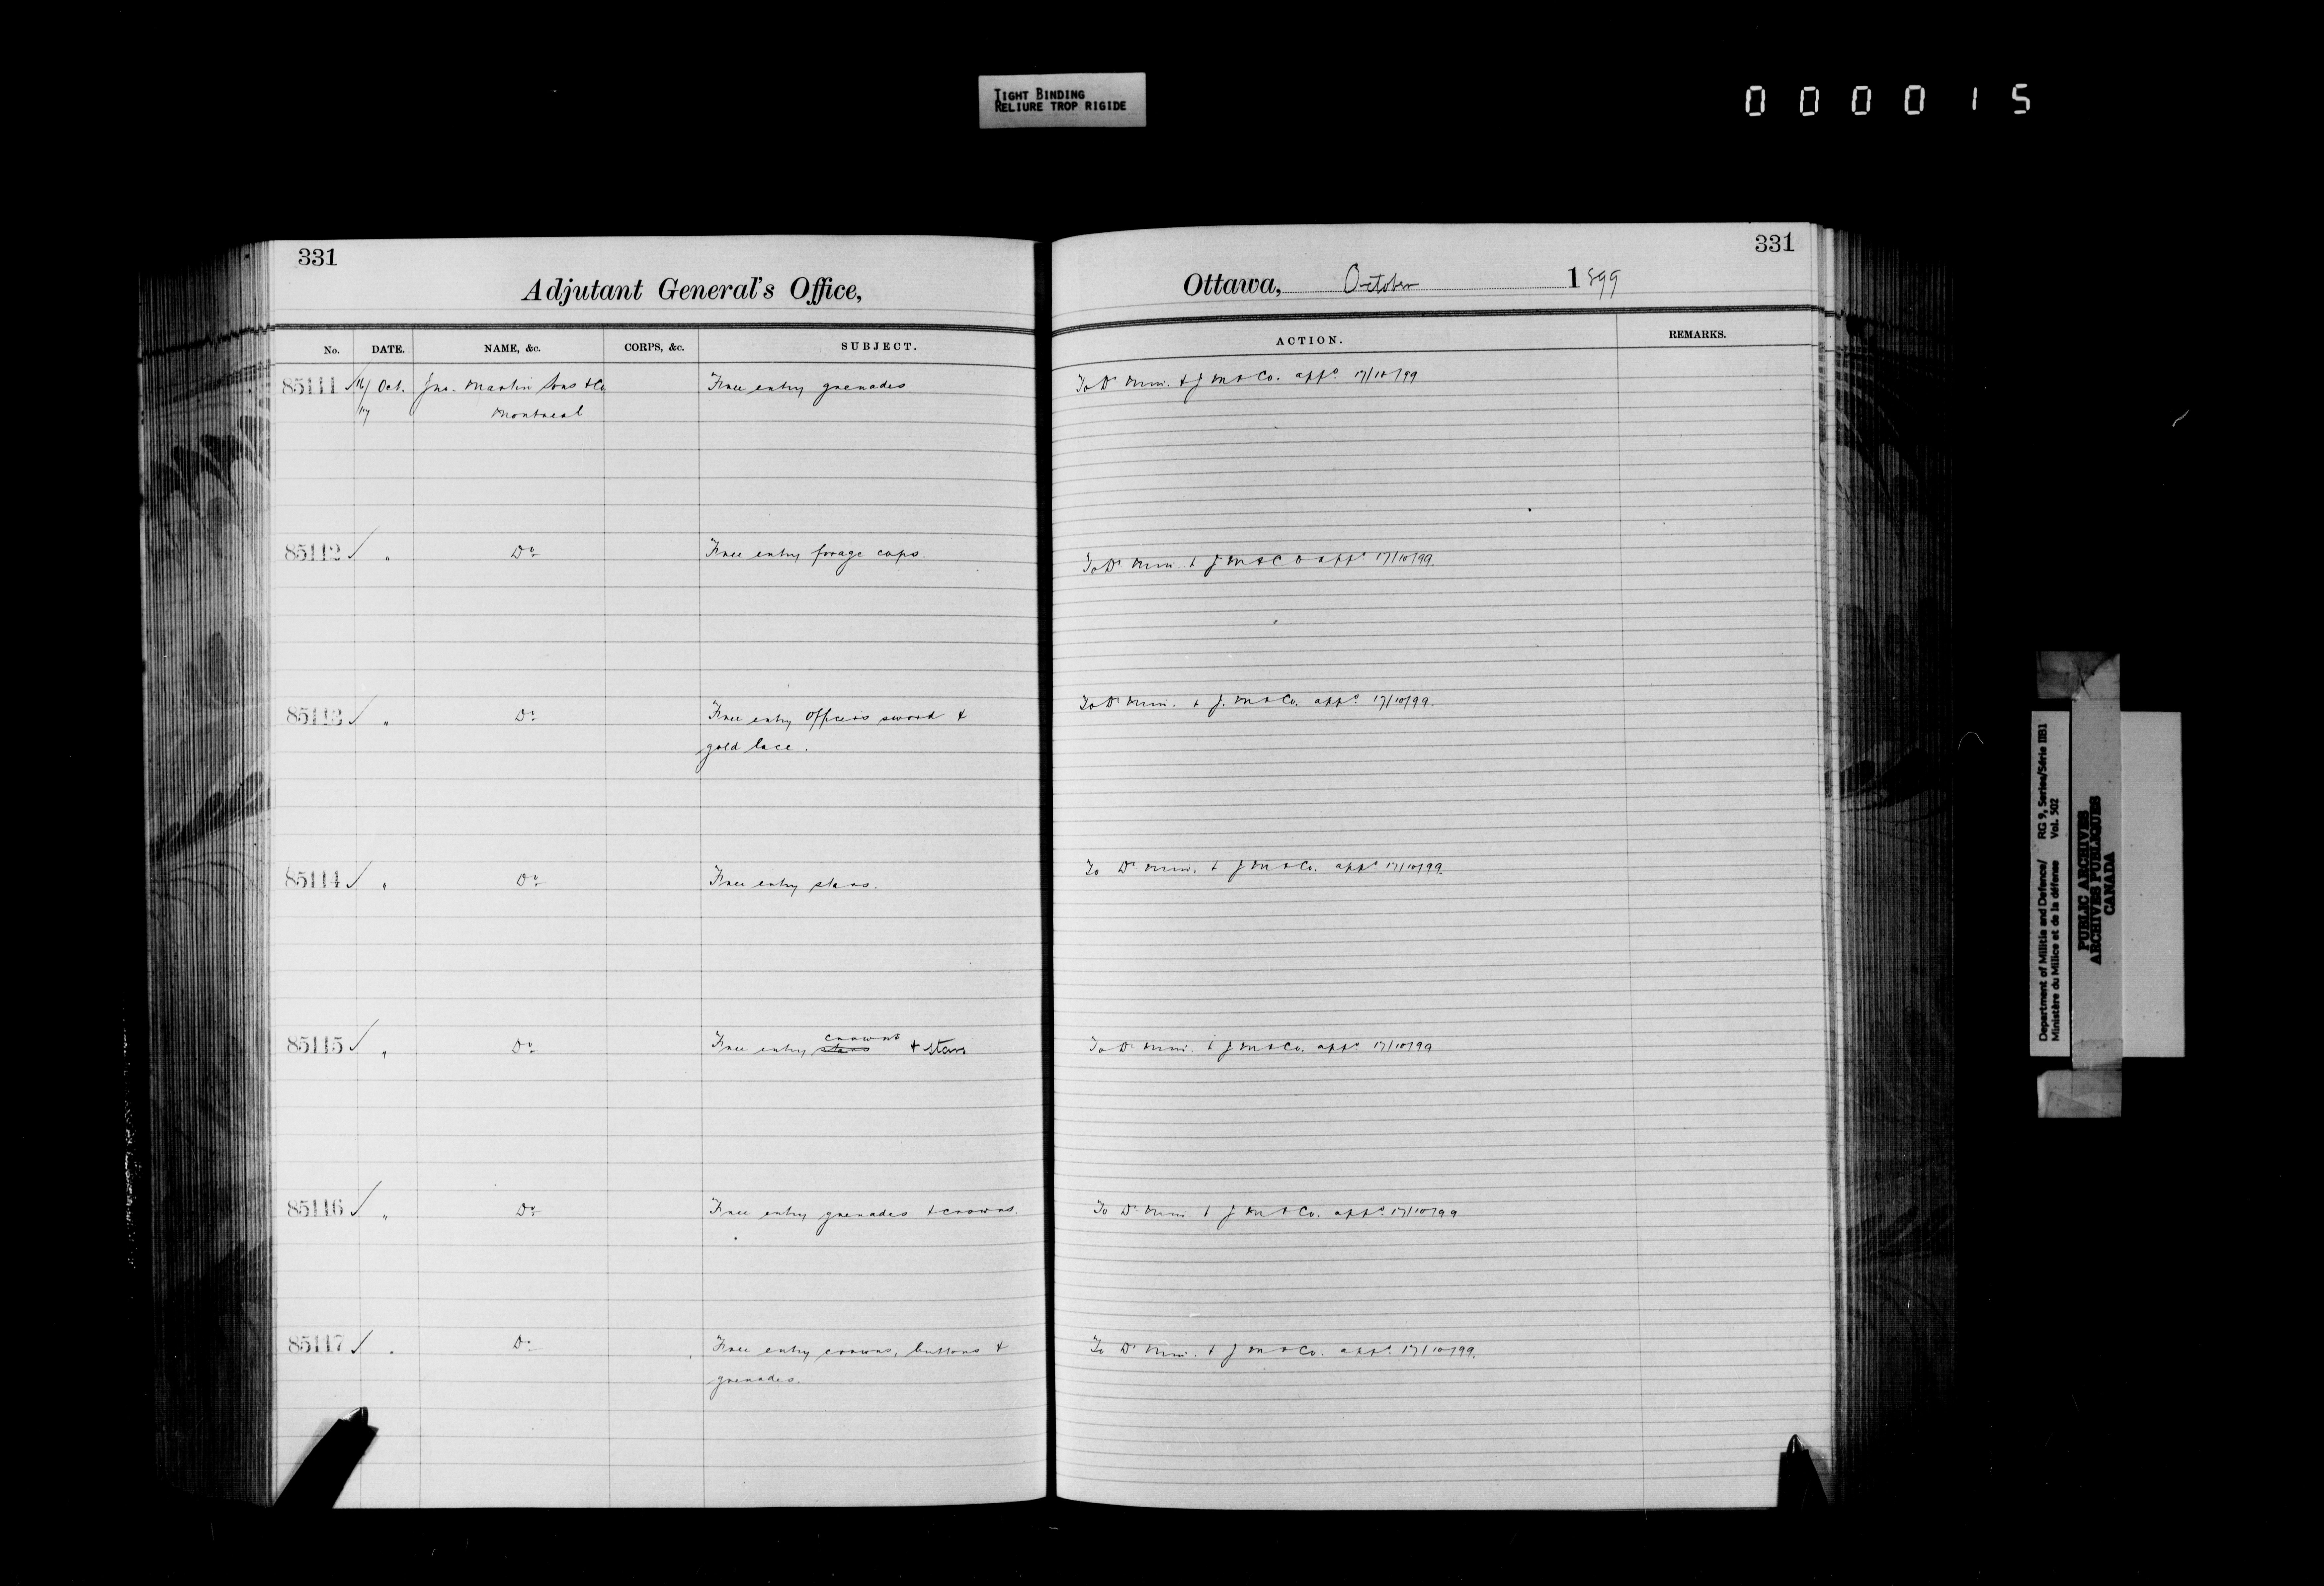 TIGHT BINDING
RELIURE TROP RIGIDE
000015
331
331
Adjutant General's Office,
Ottawa, October 1899
No. DATE. NAME, &c. CORPS, &c. SUBJECT. ACTION. REMARKS.
85111 ✓ 16/ Oct. Jno. Martin Sons & Co Free entry grenades To Dr Min. & J M & Co. appd. 17/10/99
17 Montreal
85112 ✓ " Do Free entry forage caps. To Dr Min. & J M & Co appd. 17/10/99.
85113 ✓ " Do Free entry Officers sword & To Dr Min. & J. M & Co. appd. 17/10/99.
gold lace.
85114 ✓ " Do Free entry stars. To Dr Min. & J M & Co. appd. 17/10/99.
crowns
85115 ✓ " Do Free entry stars & stars To Dr Min. & J M & Co. appd. 17/10/99
85116 ✓ " Do Free entry grenades & crowns. To Dr Min & J M & Co. appd. 17/10/99
85117 ✓ " Do Free entry crowns, buttons & To Dr Min. & J M & Co. appd. 17/10/99.
grenades.
Department of Militia and Defence/ RG 9, Series/Série IIB1
Ministère du Milice et de la défense Vol. 502
PUBLIC ARCHIVES
ARCHIVES PUBLIQUES
CANADA